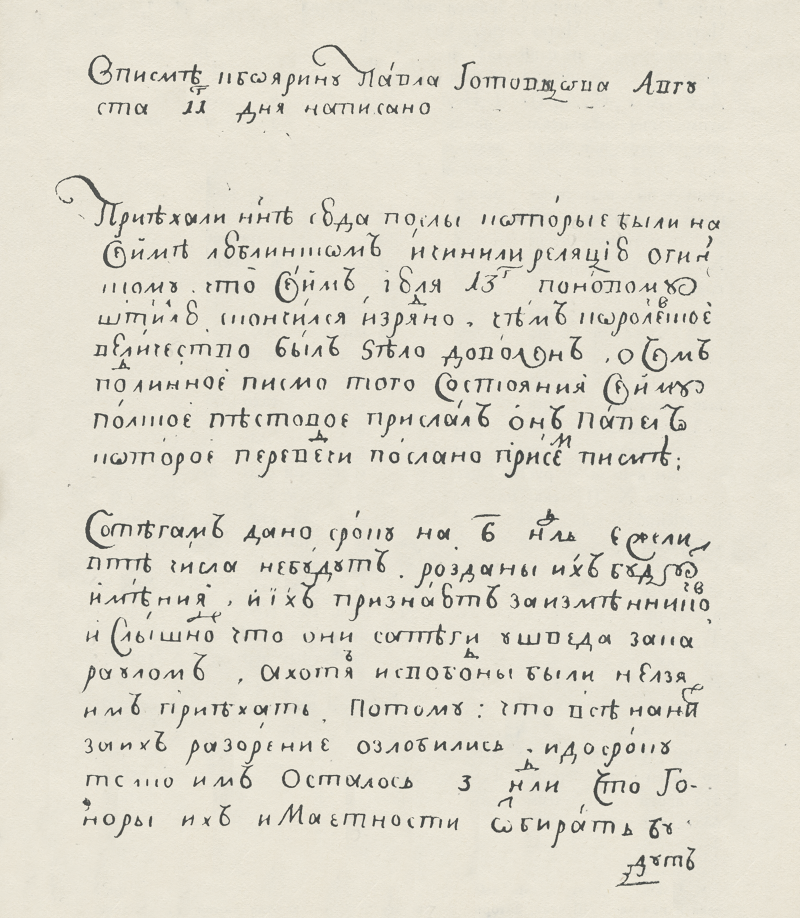 Вписмѣ кбоярину Павла Готовщова Авгу
ста 11г дня написано
Приѣхали ннѣ сюда послы которые были на
Сеймѣ люблинском и чинили реляцию огин
скому что Сеймъ июля 13г поновому
штилю скончился изрядно, чѣмъ королевское
величество былъ зѣло доволенъ, о чемъ
подлинное писмо того состояния Сейму
полское вѣстовое прислалъ онъ Павелъ
которое перевести послано присемъ писмѣ;
Сопѣгамъ дано сроку на 6 ндль ежели
втѣ числа небудутъ розданы ихъ будут
имѣния, и ихъ признаютъ заизмѣнников
и слышно что они сапѣги ушведа зака
рауломъ, а хотя испобоны были нелзя
имъ приѣхать Потому: что всѣ нани
заихъ разорение озлобились, идосроку
токмо имъ Осталось 3 ндли Что Го-
норы ихъ иМаетности ѿбирать бу
дутъ